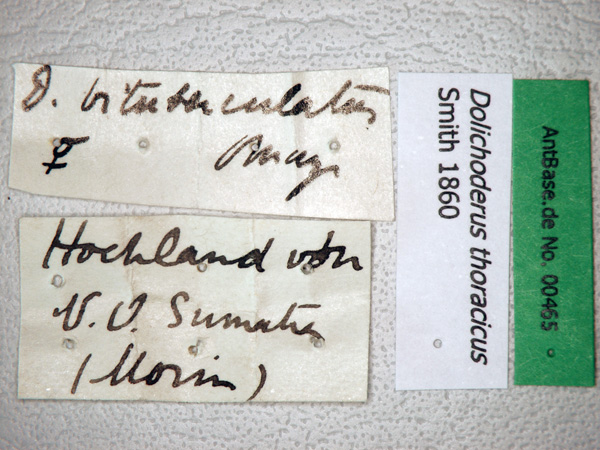 D. bituberculatus
☿ Mayr
Hochland von
N.O. Sumatra
(Morin)
Dolichoderus thoracicus
Smith 1860
AntBase.de No. 00465